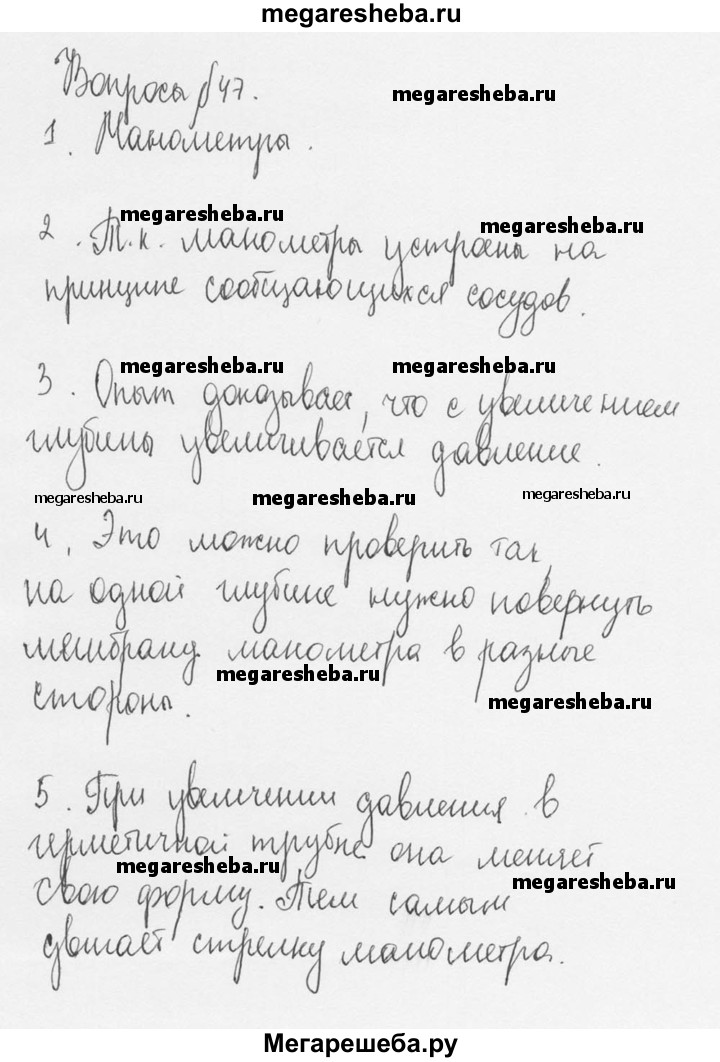 megaresheba.ru
Вопросы §47.
megaresheba.ru
1. Манометры.
megaresheba.ru
megaresheba.ru
2. Т.к. манометры устроены на
принципе сообщающихся сосудов.
megaresheba.ru megaresheba.ru
3. Опыт доказывает, что с увеличением
глубины увеличивается давление.
megaresheba.ru megaresheba.ru megaresheba.ru
4. Это можно проверить так,
на одной глубине нужно повернуть
мембрану манометра в разные
megaresheba.ru
стороны.
megaresheba.ru
5. При увеличении давления в
герметичной трубке она меняет
megaresheba.ru
megaresheba.ru
свою форму. Тем самым
двигает стрелку манометра.
Мегарешеба.ру